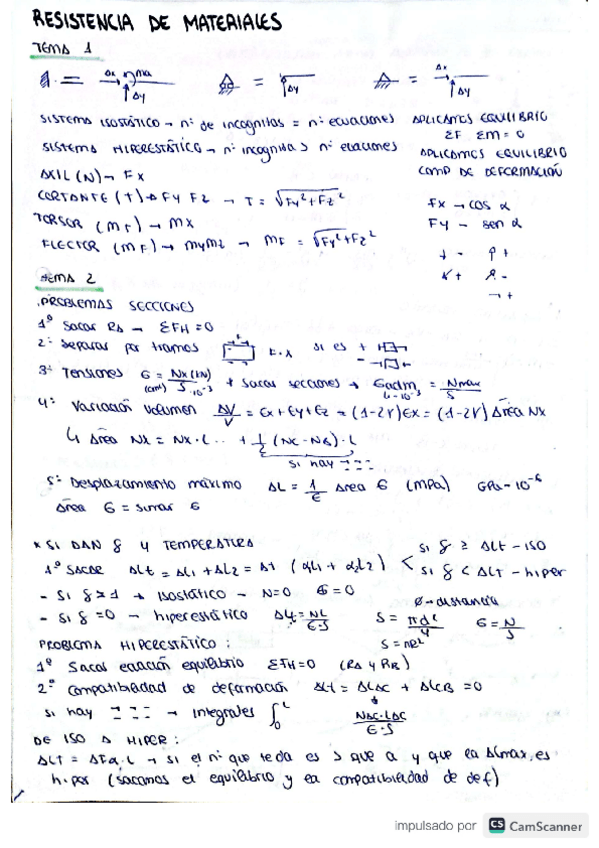 RESISTENCIA DE MATERIALES
TEMA 1
SISTEMA ISOSTÁTICO → nº de incognitas = nº ecuaciones APLICAMOS EQUILIBRIO
ΣF ΣM = 0
SISTEMA HIPERESTÁTICO → nº incognitas > nº ecuaciones APLICAMOS EQUILIBRIO
COMP DE DEFORMACIÓN
AXIL (N) → FX
CORTANTE (T) → FY FZ → T = √Fy²+Fz²
FX → cos α
TORSOR (MT) → MX
FY - sen α
FLECTOR (MF) → MyMz → MF = √Fy²+Fz²
TEMA 2
PROBLEMAS SECCIONES
1º Sacar RA → ΣFH = 0
2º Separar por tramos si es +
3º Tensiones
+ sacar secciones →
4º Variación volumen ΔV/V = Ex + Ey + Ez = (1-2V)Ex = (1-2V) Área NX
↳ Área NX = NX·L ... + 1/2 (NC-NB)·L
si hay
5º Desplazamiento máximo ΔL = 1/E Área б (MPa) GPa - 10⁻⁶
Área б = sumar б
* SI DAN δ Y TEMPERATURA
si δ ≥ ΔLT - ISO
1º SACAR ΔLt = ΔL1 + ΔL2 = Δt (α1L1 + α2L2)
si δ < ΔLT - hiper
- si δ ≥ 1 → Isostático - N=0 б=0
Ø - distancia
- si δ = 0 → hiperestático ΔL = NL/E·S S = πd²/4 б = N/S
S = πR²
PROBLEMA HIPERESTÁTICO :
1º Sacas ecuación equilibrio ΣFH = 0 (RA y RB)
2º Compatibilidad de deformación ΔLt = ΔLAC + ΔLCB = 0
si hay → integrales ∫₀ᴸ NAC·LAC/E·S
DE ISO A HIPER :
si el nº que te da es > que a y que la ΔLmax, es
hiper (sacamos el equilibrio y la compatibilidad de def)
impulsado por CS CamScanner